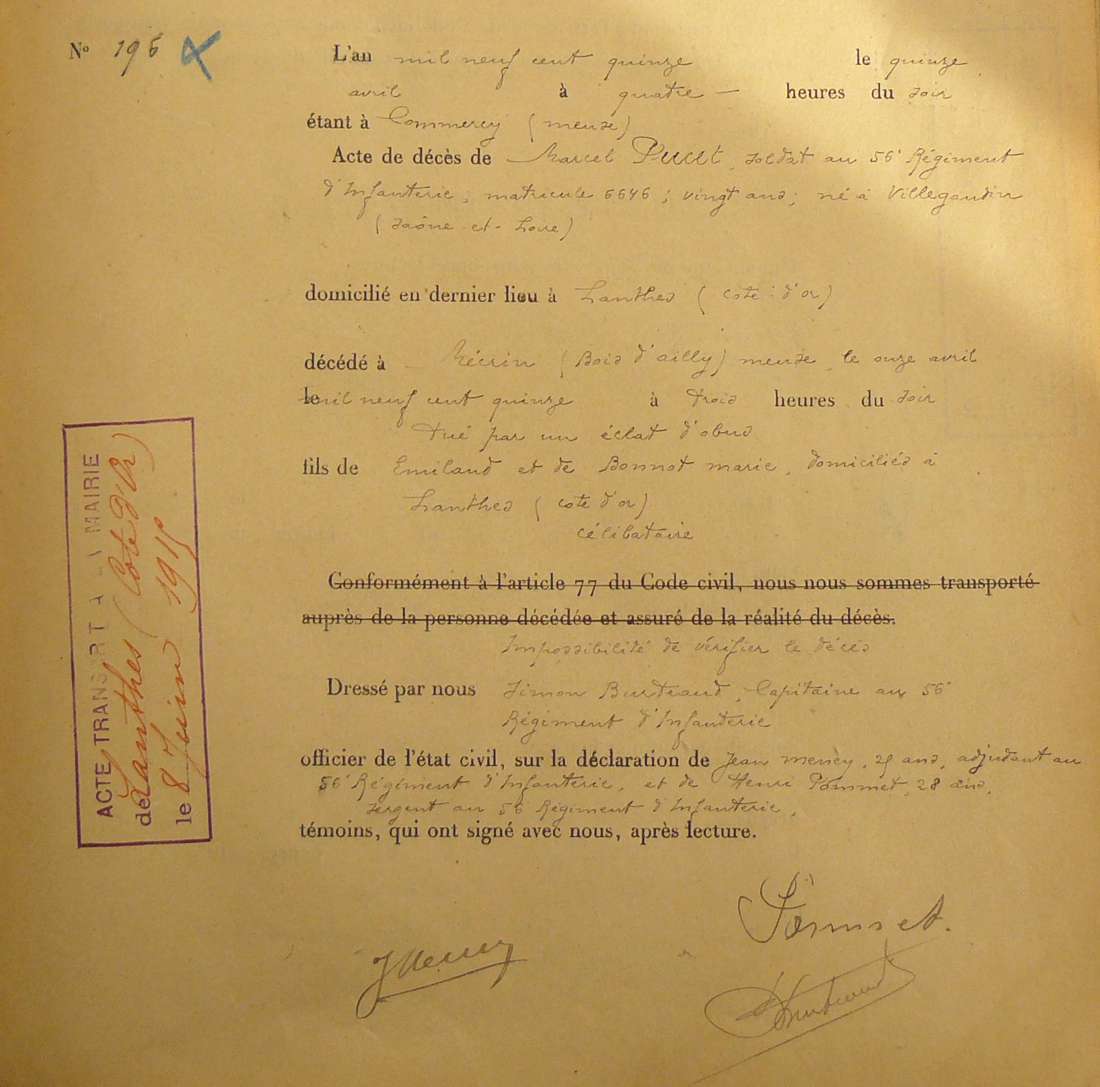 N° 196
L'an mil neuf cent quinze le quinze
avril à quatre — heures du soir
étant à Commercy (meuse)
Acte de décès de Marcel Pucet, soldat au 56e Régiment
d'Infanterie; matricule 6646; vingt ans; né à Villegaudin
(Saône-et-Loire)
domicilié en dernier lieu à Lanthes (cote d'or)
décédé à Mécrin (Bois d'ailly) meuse, le onze avril
le mil neuf cent quinze à trois heures du soir
tué par un éclat d'obus
fils de Emiland et de Bonnot marie, domiciliés à
Lanthes (cote d'or)
célibataire
Conformément à l'article 77 du Code civil, nous nous sommes transporté
auprès de la personne décédée et assuré de la réalité du décès.
Impossibilité de vérifier le décès
Dressé par nous Simon Burtraud, Capitaine au 56e
Régiment d'Infanterie
officier de l'état civil, sur la déclaration de Jean 25 ans, adjudant au
56e Régiment d'Infanterie, et de Henri Pommet, 28 ans,
sergent au 56 Régiment d'Infanterie,
témoins, qui ont signé avec nous, après lecture.
ACTE TRANSCRIT A LA MAIRIE
de Lanthes (Cote d'Or)
le 8 Juin 1915